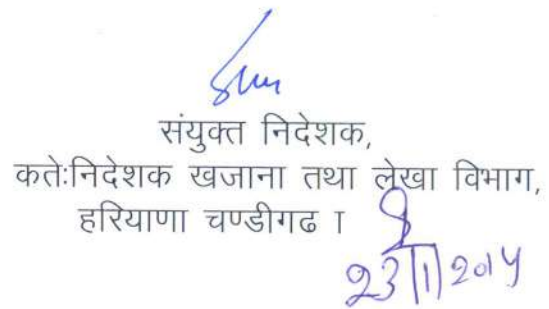 संयुक्त निदेशक,
कतेःनिदेशक खजाना तथा लेखा विभाग,
हरियाणा चण्डीगढ ।
23/1/2014